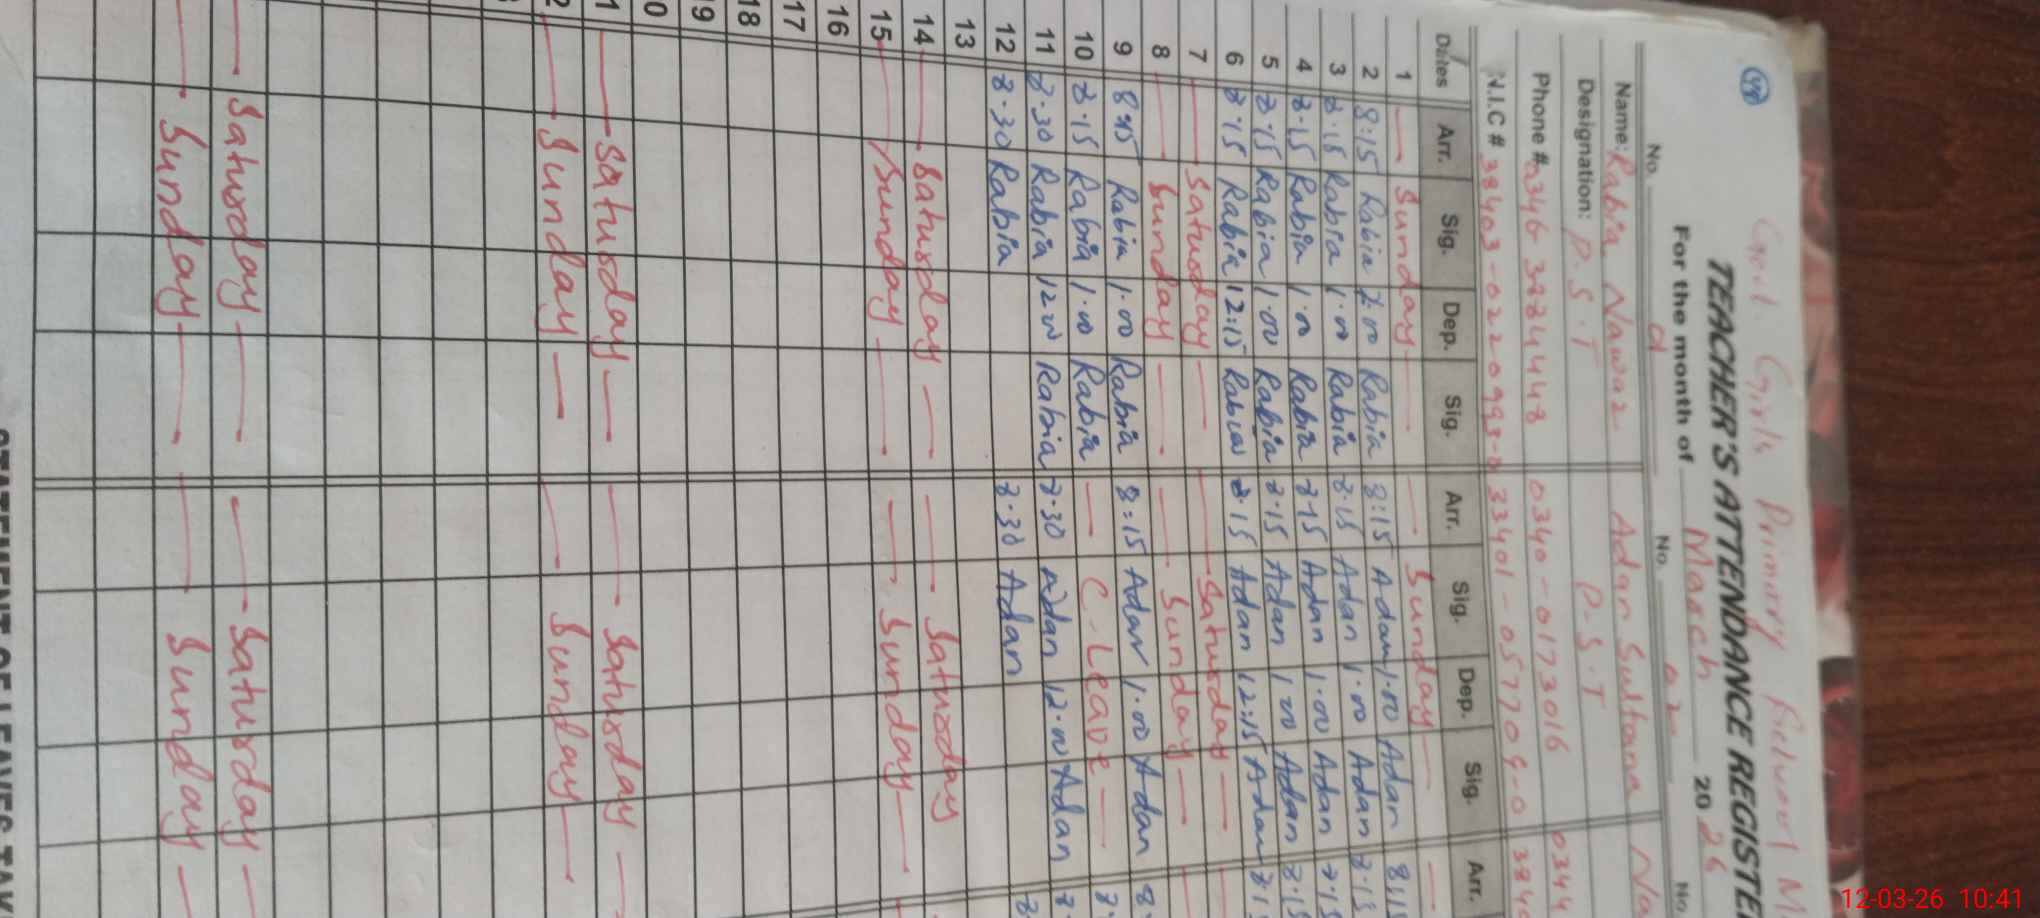 48
Govt. Girls Primary School M
TEACHER'S ATTENDANCE REGISTE
For the month of March 2026
No. No. 02 No.
Name: Rabia Nawaz Adan Sultana Na
Designation: P.S.T P.S.T
Phone # 0346 3484448 0340-0173016 0344
N.I.C # 38403-0220993-8 33401-057709-0 3840
Dates Arr. Sig. Dep. Sig. Arr. Sig. Dep. Sig. Arr.
1 — Sunday — — Sunday — —
2 8:15 Rabia 1.00 Rabia 8:15 Adan 1.00 Adan 8:15
3 8.15 Rabia 1.00 Rabia 8.15 Adan 1.00 Adan 8.15
4 8.15 Rabia 1.00 Rabia 8.15 Adan 1.00 Adan 8.15
5 8.15 Rabia 1.00 Rabia 8.15 Adan 1 00 Adan 8.15
6 8.15 Rabia 12:15 Rabia 8.15 Adan 12:15 Adan 8.15
7 — Saturday — — Saturday — —
8 — Sunday — — Sunday — —
9 8:15 Rabia 1.00 Rabia 8:15 Adan 1.00 Adan 8
10 8.15 Rabia 1.00 Rabia — C-Leave — 8.
11 8.30 Rabia 12 00 Rabia 8.30 Adan 12.00 Adan 8.
12 8.30 Rabia 8.30 Adan 8.
13
14 — Saturday — — Saturday
15 — Sunday — — Sunday —
16
17
18
19
0
1 — Saturday — — Saturday —
2 — Sunday — — Sunday —
— Saturday — — Saturday —
— Sunday — — Sunday —
STATEMENT OF LEAVES TAK
12-03-26 10:41